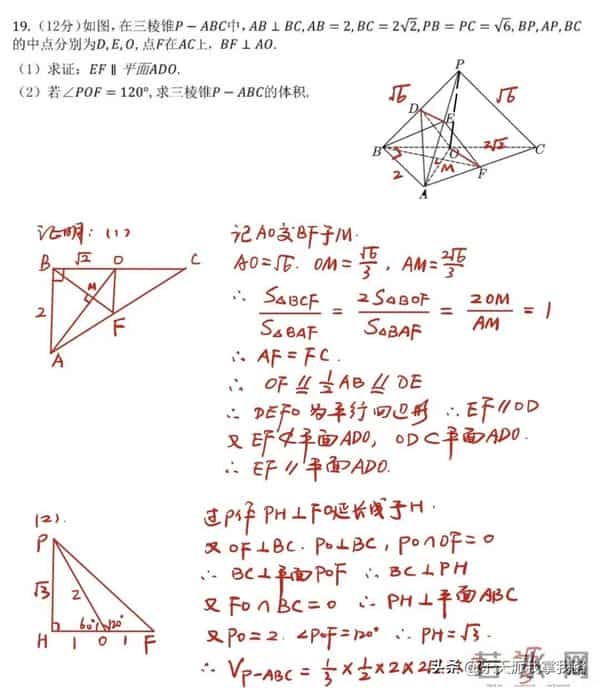 19.(12分)如图,在三棱锥P－ABC中,AB ⊥ BC,AB = 2,BC = 2√2,PB = PC = √6,BP,AP,BC
的中点分别为D,E,O,点F在AC上, BF ⊥ AO.
(1) 求证: EF ∥ 平面ADO.
(2) 若∠POF = 120°,求三棱锥P－ABC的体积.
P
√6
√6
D
E
2√2
B
O
C
2
M
F
A
证明: (1)
记AO交BF于M.
B √2 O C
AO=√6. OM=√6/3, AM=2√6/3
M
2
F
A
∴ S△BCF/S△BAF = 2S△BOF/S△BAF = 2OM/AM = 1
∴ AF = FC.
∴ OF ∥ 1/2 AB ∥ DE
∴ DEFO 为平行四边形 ∴ EF∥OD
又 EF⊄平面ADO, OD⊂平面ADO.
∴ EF∥平面ADO.
(2).
过P作 PH⊥FO延长线于H.
P
又 OF⊥BC. PO⊥BC, PO∩OF=O
√3 2
∴ BC⊥平面POF ∴ BC⊥PH
60° 120°
又 FO∩BC=O ∴ PH⊥平面ABC
H 1 O 1 F
又PO=2. ∠POF=120° ∴ PH=√3.
∴ V P-ABC = 1/3 × 1/2 × 2 × 2
头条